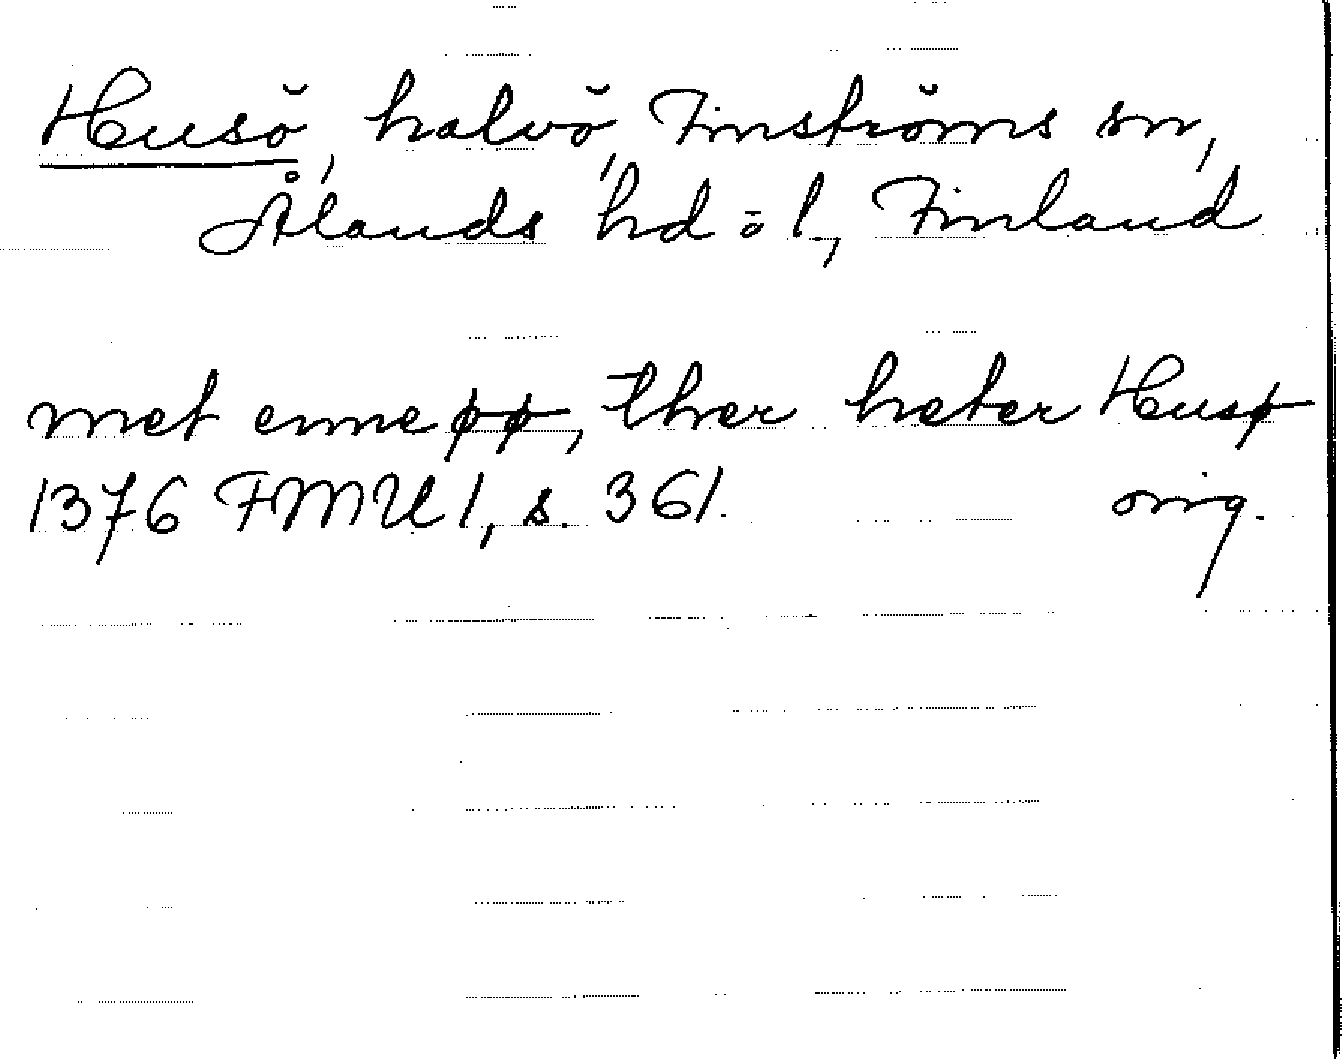 Husö, halvö, Finströms sn,
Ålands hd o l, Finland
met enne øø, ther heter Husø
1376 FMU 1, s. 361. orig.